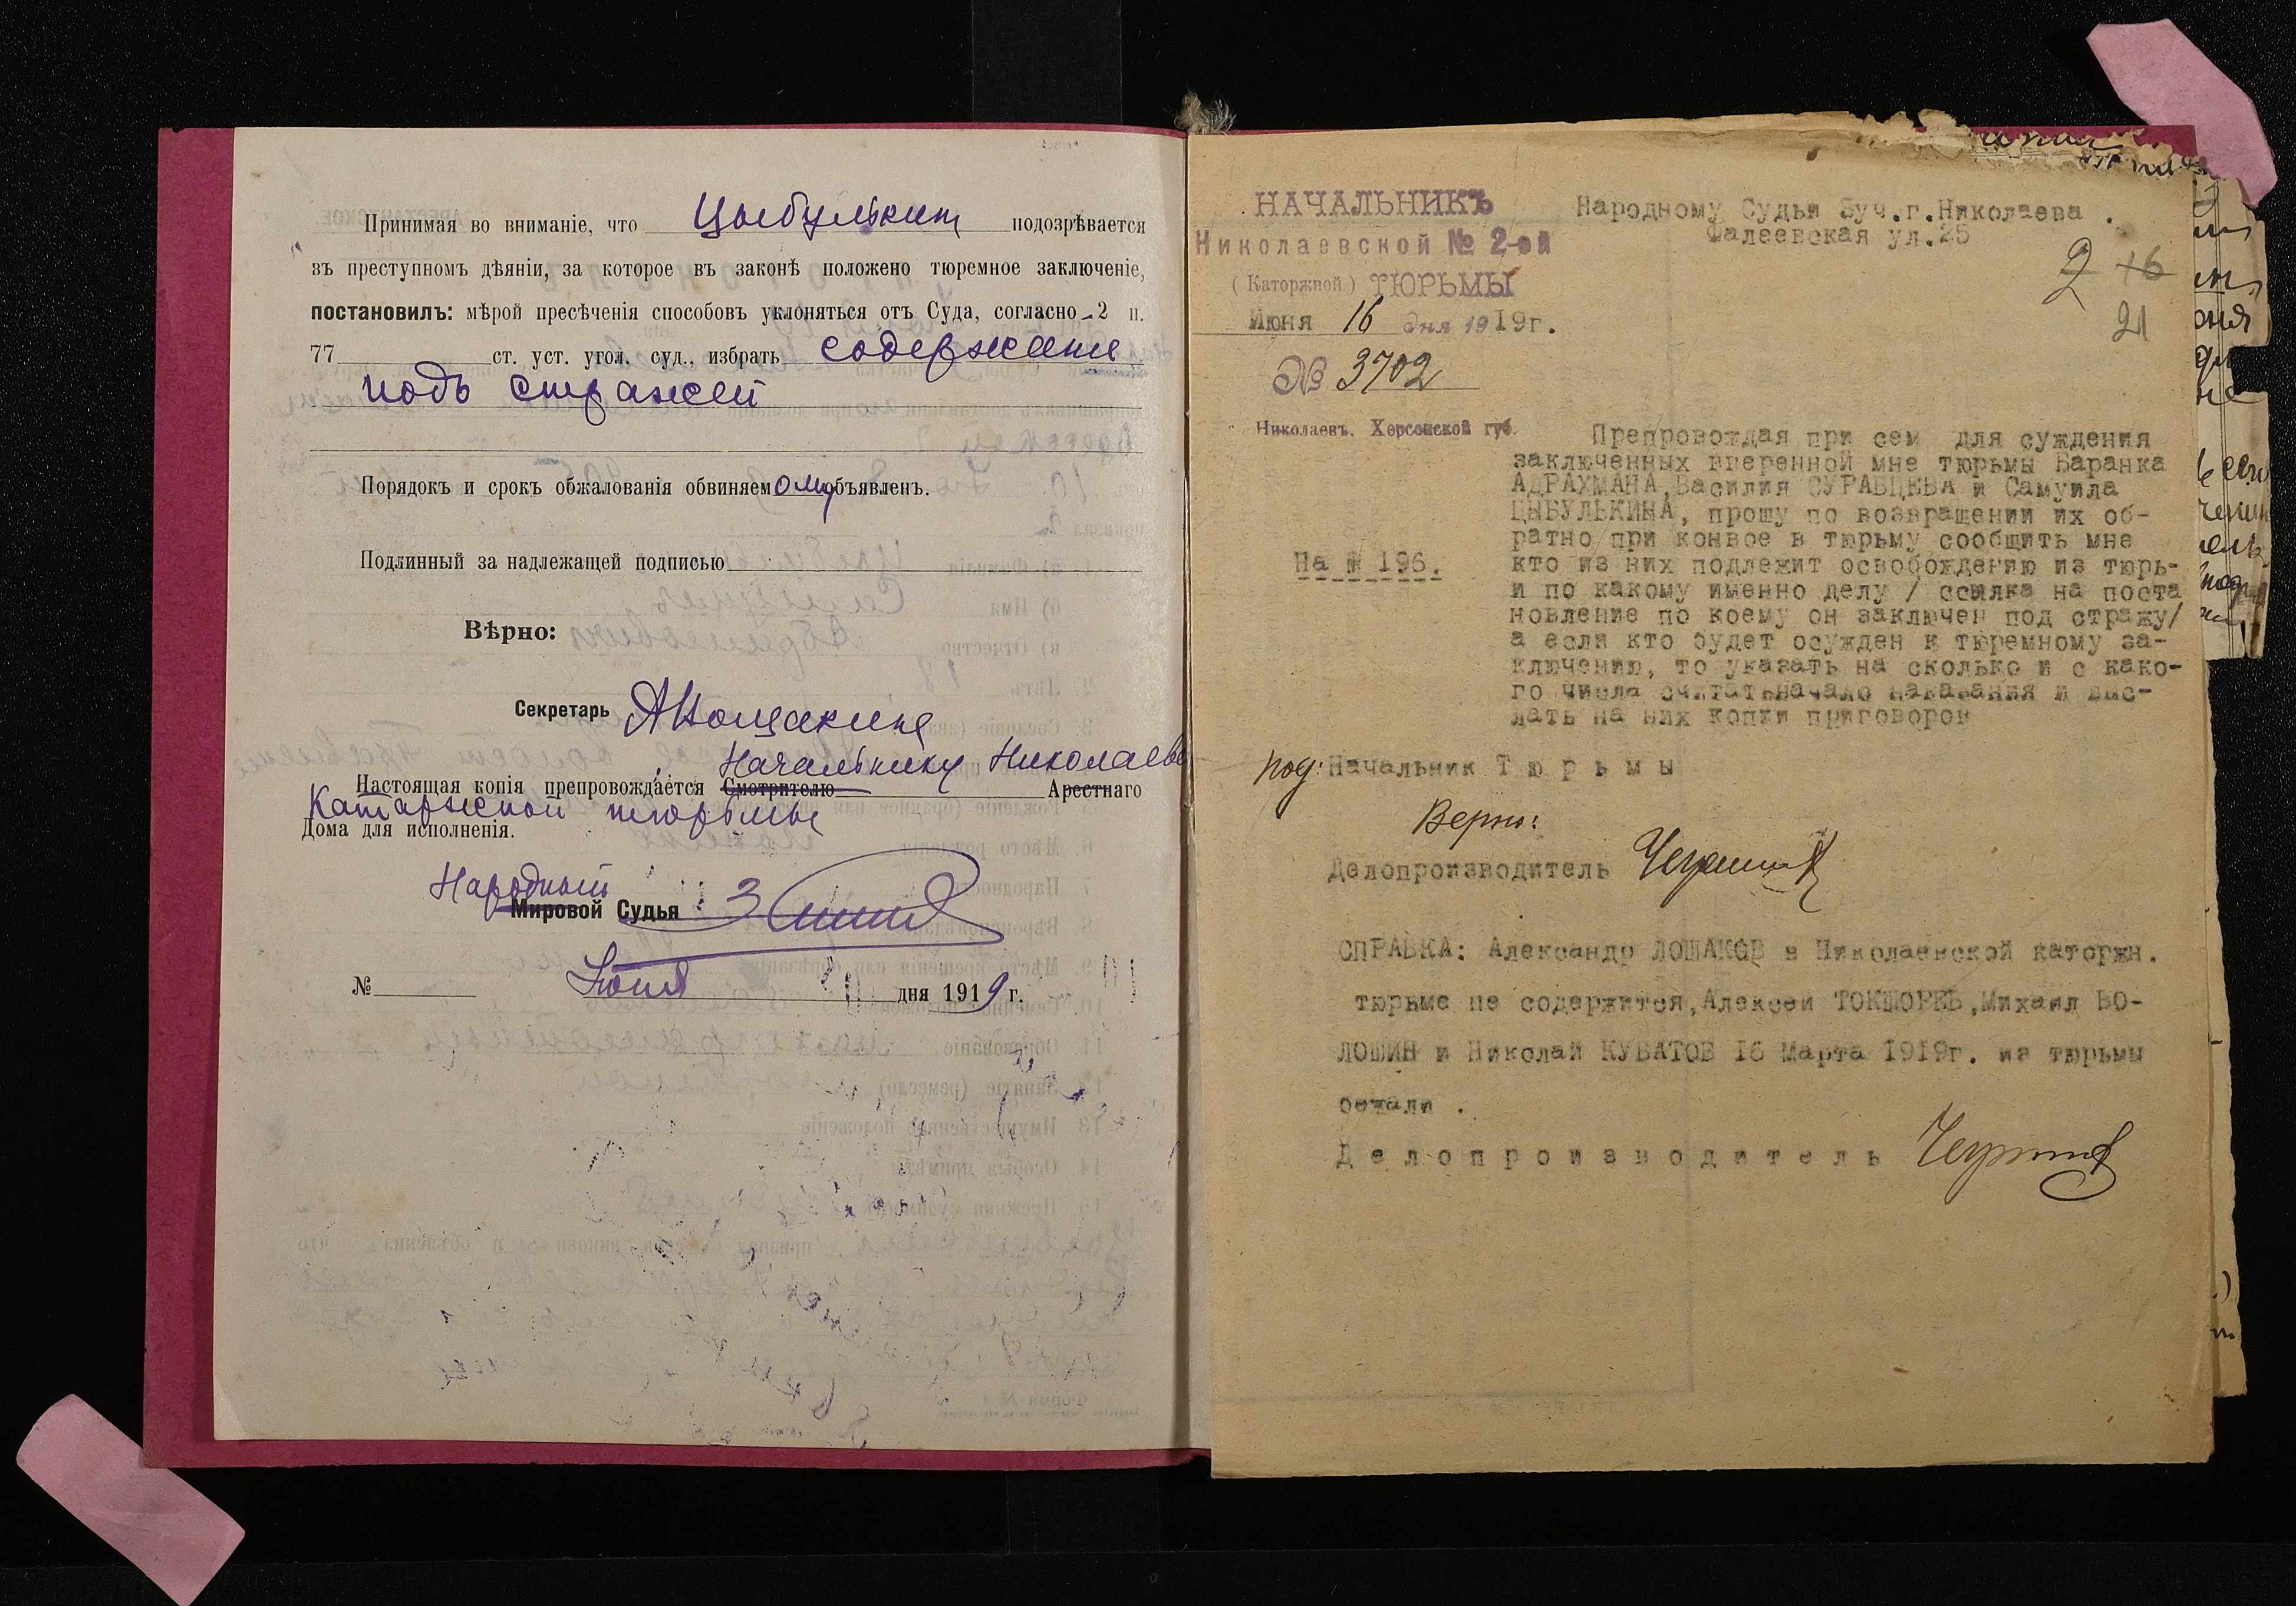 Принимая во вниманіе, что Цыбулькин подозрѣвается
въ преступномъ дѣяніи, за которое въ законѣ положено тюремное заключеніе,
постановилъ: мѣрой пресѣченія способовъ уклоняться отъ Суда, согласно 2 п.
77 ст. уст. угол. суд., избрать содержание
подъ стражей
Порядокъ и срокъ обжалованія обвиняемому объявленъ.
Подлинный за надлежащей подписью
Вѣрно:
Секретарь
Начальнику Николаевс
Настоящая копія препровождается Смотрителю Арестнаго
Катаржной тюрьмы
Дома для исполненія.
Народный
Мировой Судья
№ Июня дня 1919 г.
НАЧАЛЬНИКЪ
Николаевской № 2-ой
(Каторжной) ТЮРЬМЫ
Июня 16 дня 1919г.
№ 3702
Николаевъ, Херсонской губ.
На № 196.
Народному Судьи 3уч.г.Николаева .
Фалеевская ул.25
2 16
21
Препровождая при сем для суждения
заключенных вперенной мне тюрьмы Баранка
АДРАХМАНА,Василия СУРАВЦЕВА и Самуила
ЦЫБУЛЬКИНА, прошу по возвращении их об-
ратно при конвое в тюрьму сообщить мне
кто из них подлежит освобождению из тюрь-
и по какому именно делу / ссылка на поста
новление по коему он заключен под стражу/
а если кто будет осужден к тюремному за-
ключению, то указать на сколько и с како-
го числа считатьначало наказания и выс-
лать на них копии приговоров
под: Начальник Тюрьмы
Верно:
Делопроизводитель
СПРАВКА: Александр ЛОШАКОВ в Николаевской каторжн.
тюрьме не содержится,Алексей ТОКШОРЕВ,Михаил ВО-
ЛОШИН и Николай КУБАТОВ 16 Марта 1919г. из тюрьмы
бежали .
Делопроизводитель